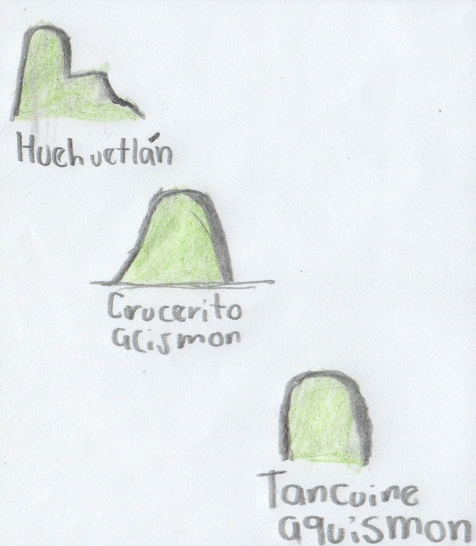 Huehuetlán
Crucerito
acismon
Tancuine
aquismon